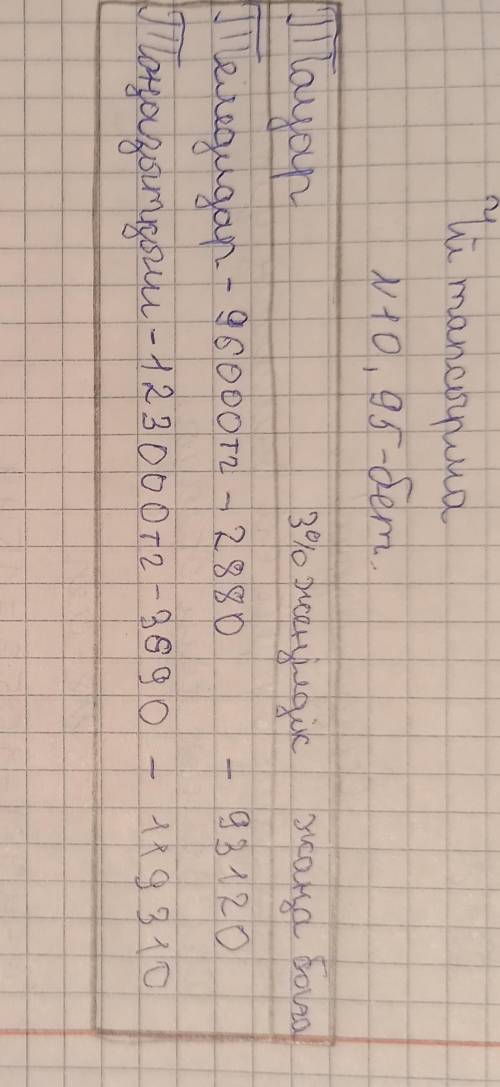 Үй тапсырма
№10, 95-бет.
Тауар 3% жеңілдік жаңа баға
Теледидар - 96000тг - 2880 - 93120
Тоңазытқыш - 123000тг - 3690 - 119310